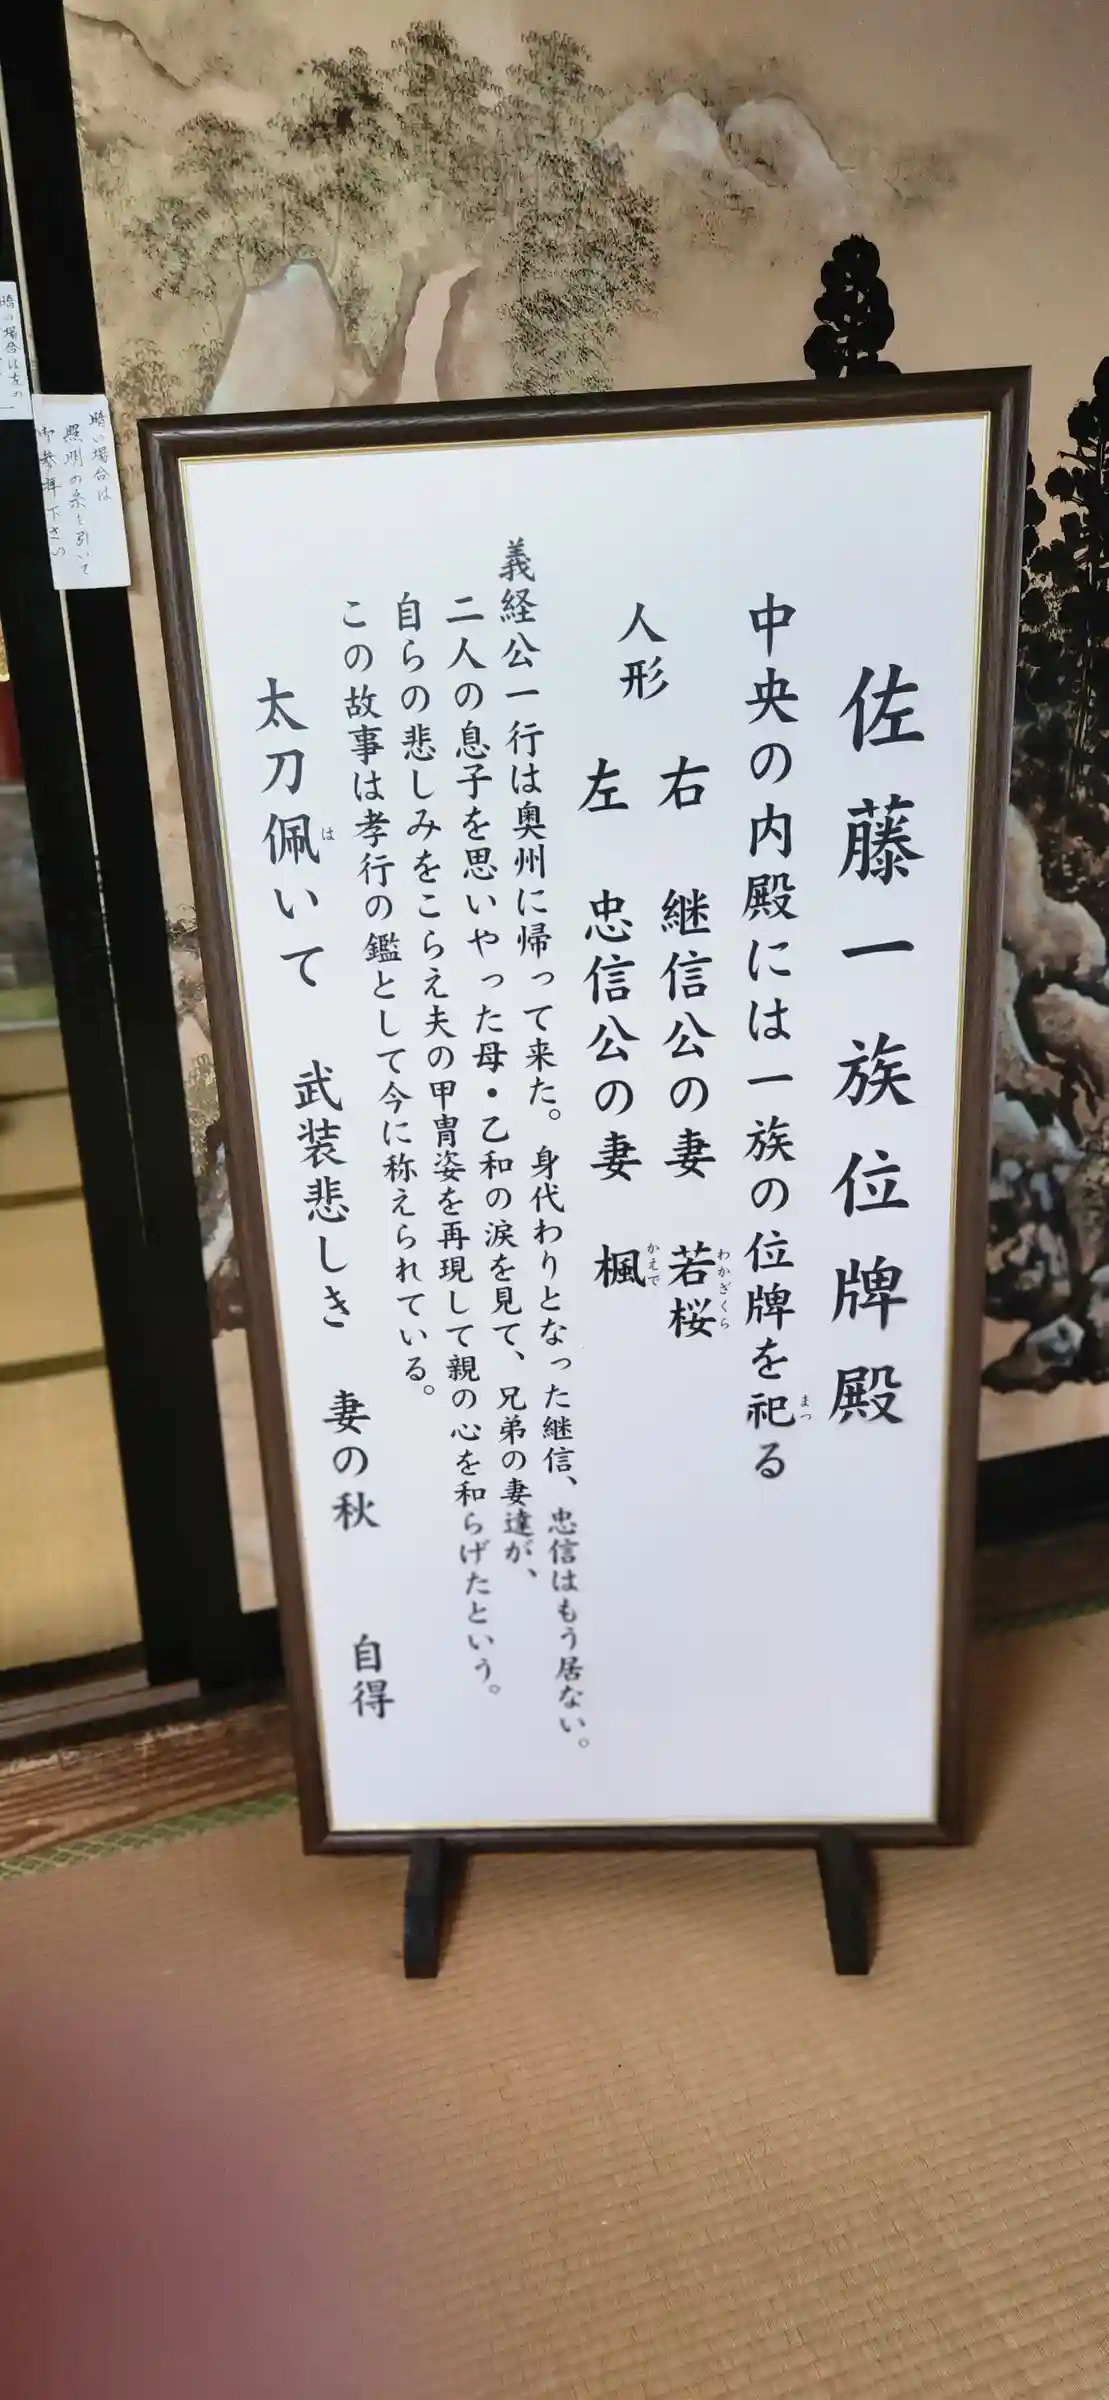 佐藤一族位牌殿
中央の内殿には一族の位牌を祀る
まつ
人形
右 継信公の妻 若桜
わかざくら
左 忠信公の妻 楓
かえで
義経公一行は奥州に帰って来た。身代わりとなった継信、忠信はもう居ない。
二人の息子を思いやった母・乙和の涙を見て、兄弟の妻達が、
自らの悲しみをこらえ夫の甲冑姿を再現して親の心を和らげたという。
この故事は孝行の鑑として今に称えられている。
太刀佩いて 武装悲しき 妻の秋 自得
は
暗い場合は
照明の糸を引いて
御参拝下さい
暗の場合は左の